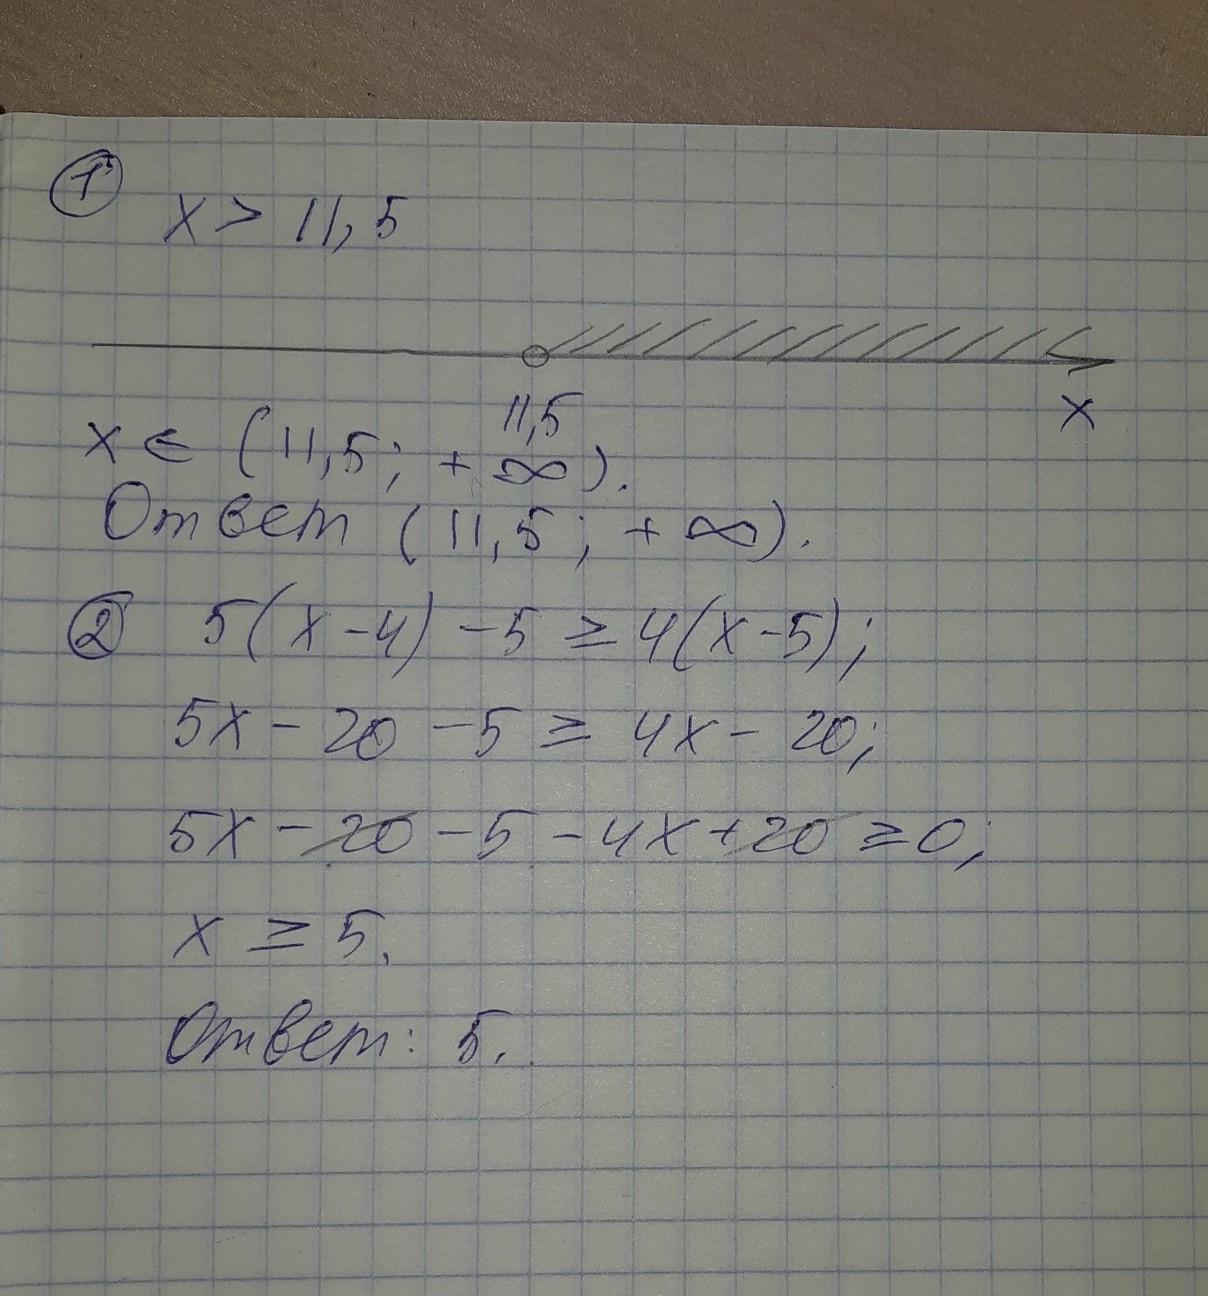 1
x > 11,5
11,5
x
x ∈ (11,5; +∞).
Ответ (11,5; +∞).
2 5(x-4) -5 ≥ 4(x-5);
5x - 20 - 5 ≥ 4x - 20;
5x - 20 - 5 - 4x + 20 ≥ 0;
x ≥ 5.
Ответ: 5.